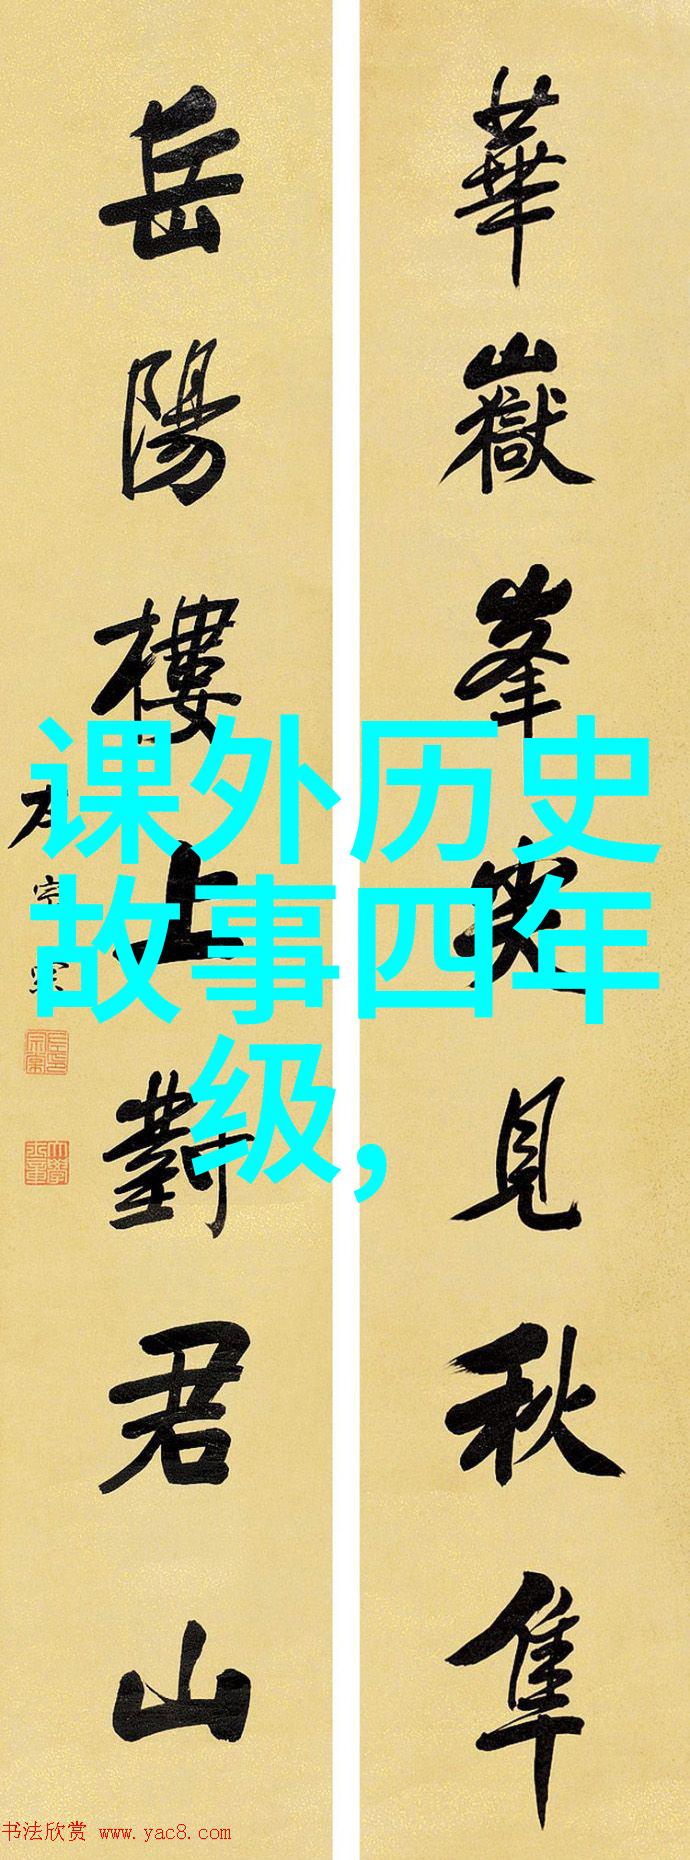 華嶽峯尖見秋隼
岳陽樓上對君山
左宗棠
课外历史
故事四年
级,
书法欣赏 www.yac8.com